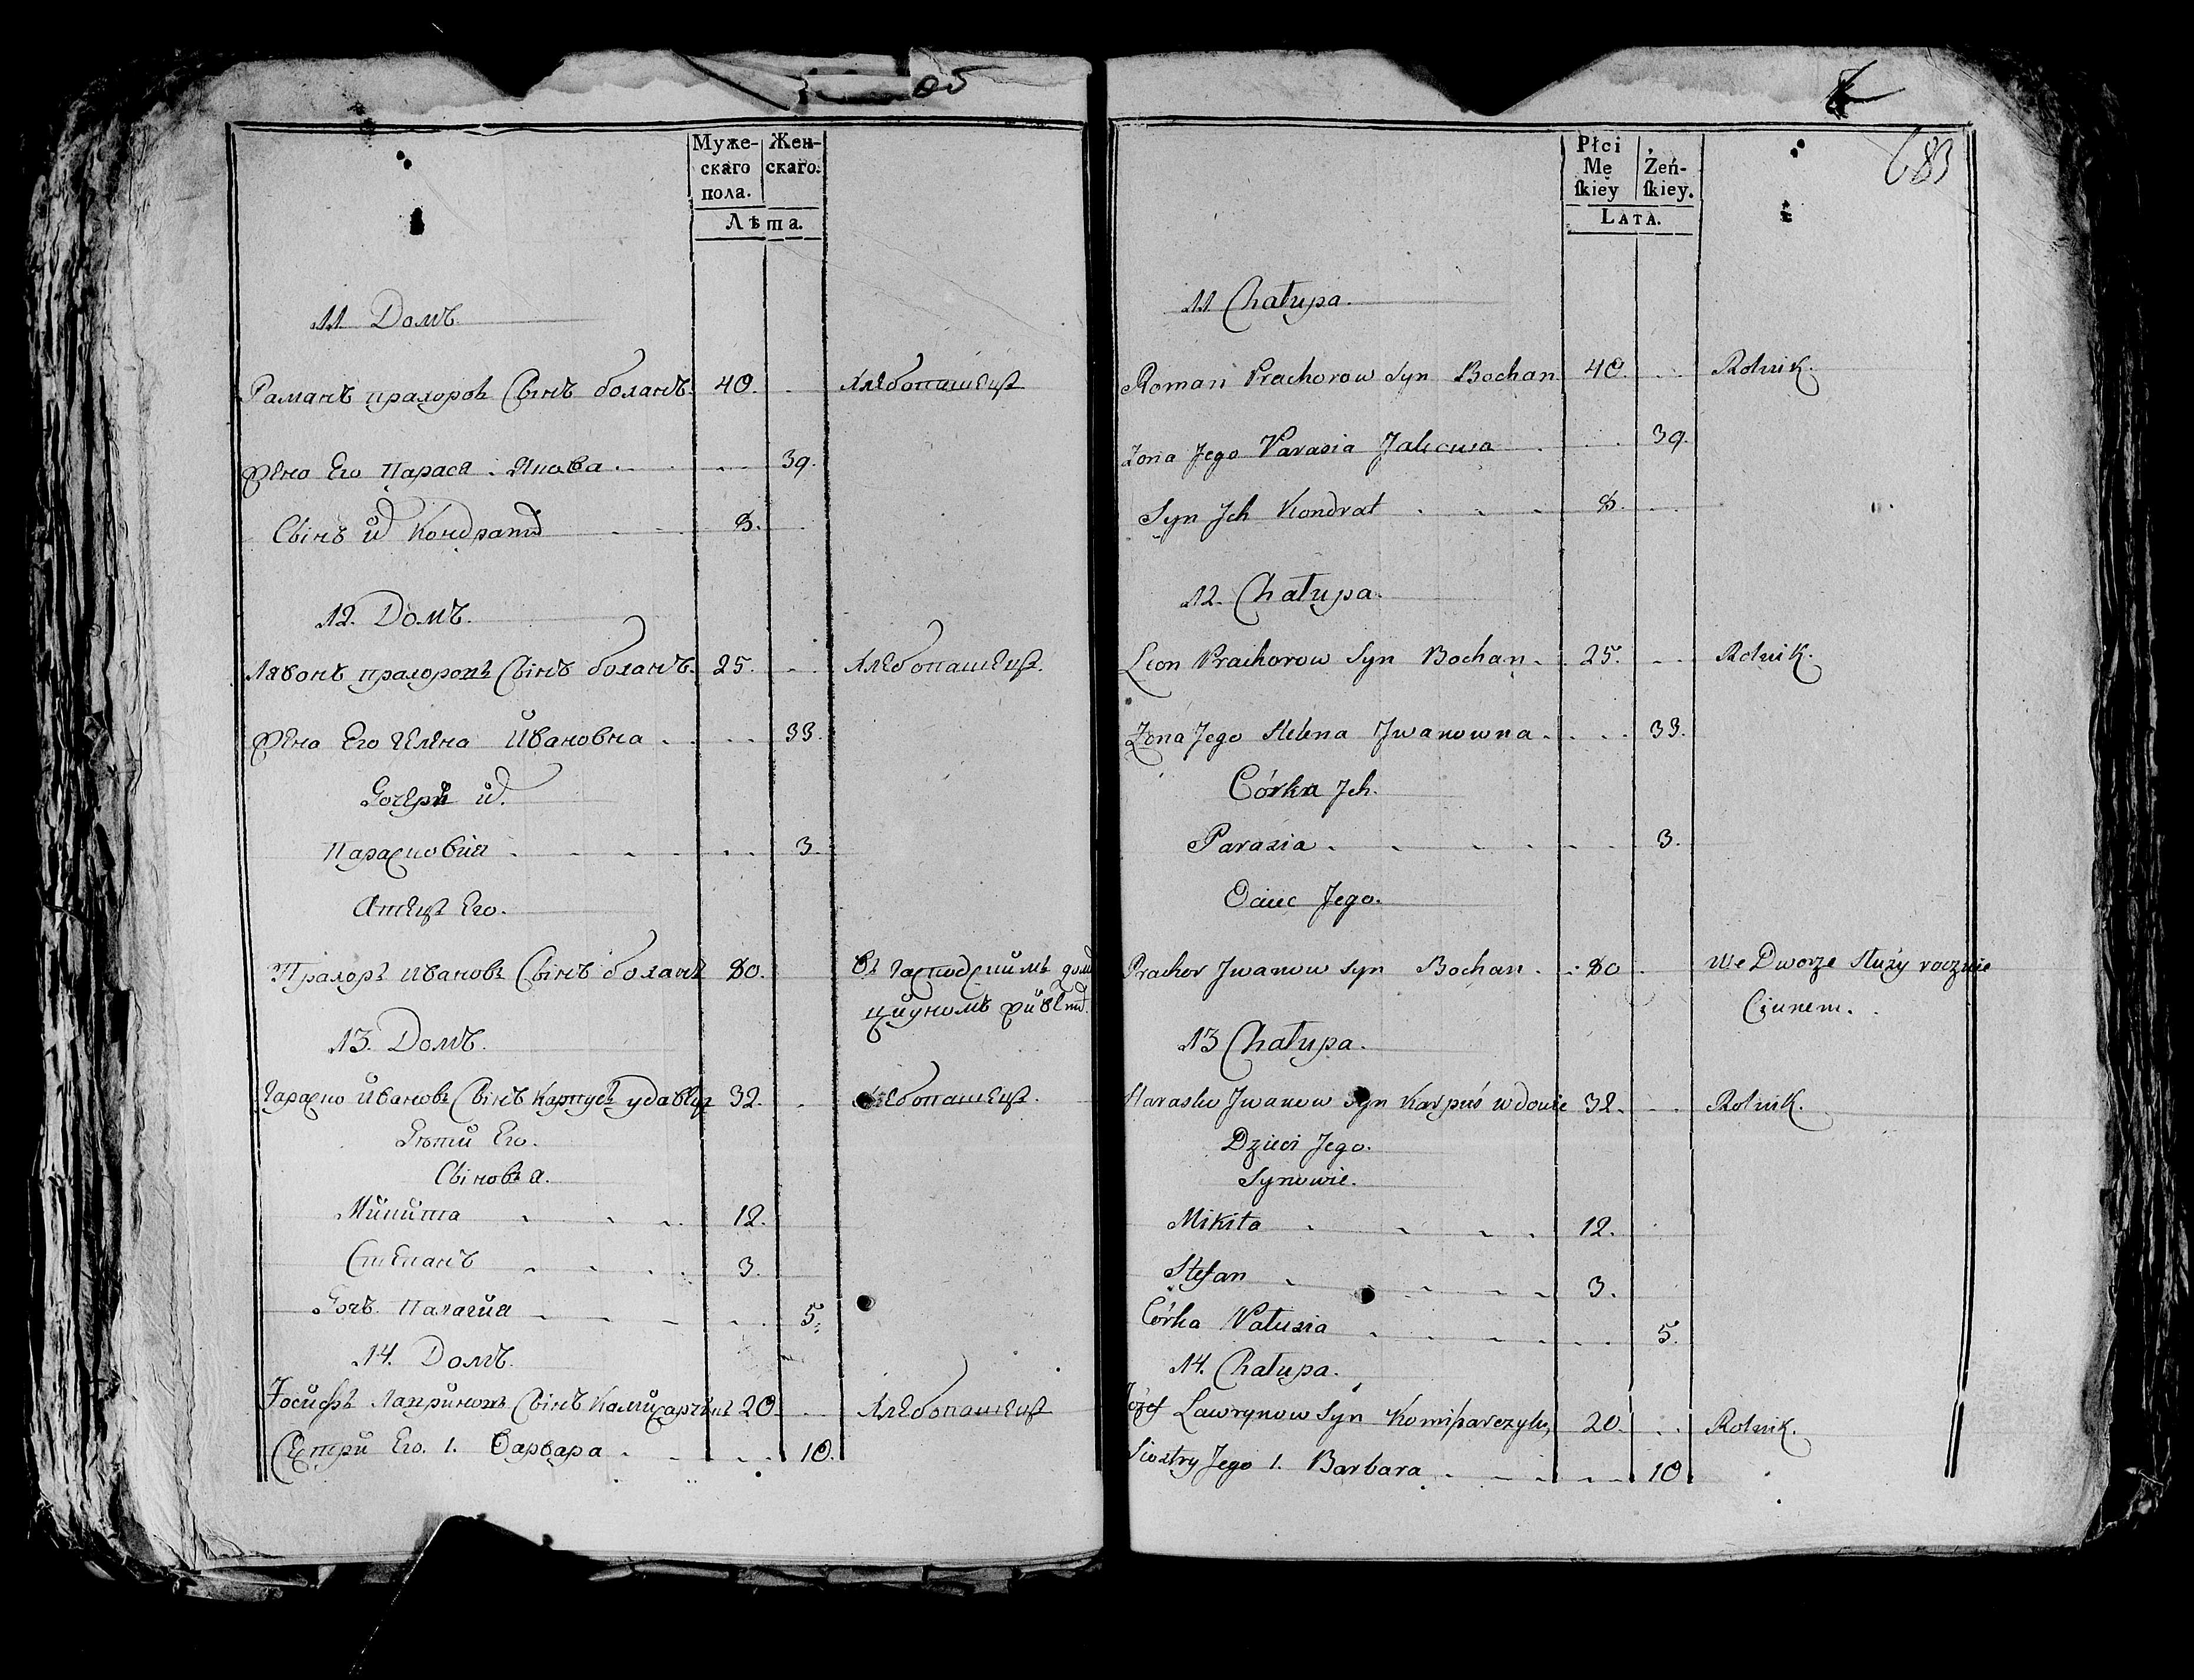 Муже-
скаго
пола.
Жен-
скаго.
Лѣта.
11 Домъ.
Раманъ прахоровъ Сынъ боханъ. 40. Хлебопашецъ
Жена Его Параса 39.
Сынъ их Кондратъ 8.
12. Домъ.
Лявонъ прахоровъ Сынъ боханъ. 25. Хлебопашецъ.
Жена Его Гелена Ивановна 33.
Дочери их.
Парасковия 3.
Атецъ Его.
Прахоръ Ивановъ Сынъ боханъ 80.
цивуномъ живетъ.
13. Домъ.
Гараско Ивановъ Сынъ Карпусь удавец 32. Хлебопашецъ.
Дѣти Его.
Сынова.
Микита 12.
Степанъ 3.
Дочь Палагия 5.
14. Домъ.
Іосифъ Лавриновъ Сынъ 20. Хлебопашецъ
Сестри Его. 1. Варвара 10.
683
Płci
Mę
ſkiey
Żeń-
ſkiey.
Lata.
11 Chałupa.
Roman Prachorow Syn Bochan 40. Rolnik.
Żona Jego Parasia 39.
Syn Jch Kondrat 8.
12. Chałupa.
Leon Prachorow Syn Bochan 25. Rolnik.
Żona Jego Helena Jwanowna 33.
Córka Jch.
Parasia 3.
Ociec Jego.
Prachor Jwanow Syn Bochan 80 We Dworze służy rocznie
Ciunem.
13 Chałupa.
Harasko Jwanow Syn Karpuś wdowiec 32. Rolnik.
Dzieci Jego.
Synowie.
Mikita 12.
Stefan 3.
Córka Palusia 5.
14. Chałupa.
Józef Lawrynow Syn 20. Rolnik.
Siostry Jego 1. Barbara 10